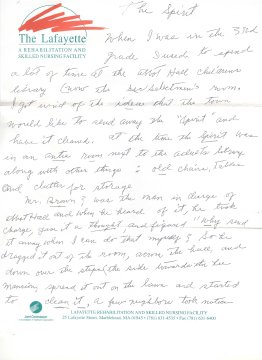 The Spirit
The Lafayette
A REHABILITATION AND
SKILLED NURSING FACILITY
When I was in the 3rd
grade I used to spend
a lot of time at the Abbot Hall childrens
library (now the Selectmen's room.
I got wind of the ideas that the town
would like to send away the "Spirit" and
have it cleaned. at the time the Spirit was
in an room next to the adults library
along with other things: old chairs, Tables
and clutter for storage
Mr. Brown? was the man in charge of
Abbot Hall and when he heard of it, he took
charge, gave it a thought and figured "Why send
it away when I can do that myself? So he
dragged it out of the room, across the hall, and
down over the steps the side towards the Lee
Mansion, spread it out on the lawn and started
to clean it, a few neighbors took notice
LAFAYETTE REHABILITATION AND SKILLED NURSING FACILITY
25 Lafayette Street, Marblehead, MA 01945 • (781) 631-4535 • Fax (781) 631-